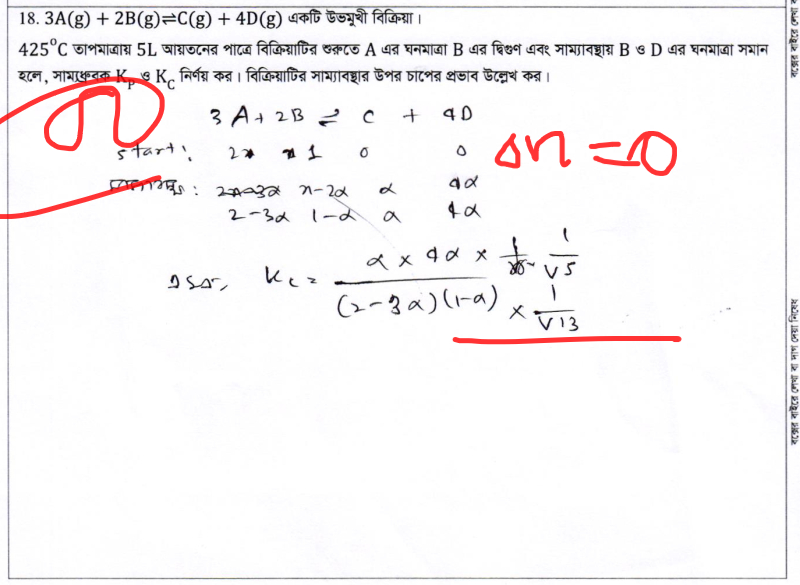 18. 3A(g) + 2B(g)⇌C(g) + 4D(g) একটি উভমুখী বিক্রিয়া।
425⁰C তাপমাত্রায় 5L আয়তনের পাত্রে বিক্রিয়াটির শুরুতে A এর ঘনমাত্রা B এর দ্বিগুণ এবং সাম্যাবস্থায় B ও D এর ঘনমাত্রা সমান
হলে, সাম্যধ্রুবক Kₚ ও K_C নির্ণয় কর। বিক্রিয়াটির সাম্যাবস্থার উপর চাপের প্রভাব উল্লেখ কর।
3 A + 2B ⇌ C + 4D
start: 2 1 0 0 Δn = 0
: n-2α α 4α
2-3α 1-α α 4α
Kc = α × 4α × 1/V5
(2-3α)(1-α) × 1/V13
বক্সের বাইরে লেখা বা দাগ দেয়া নিষেধ